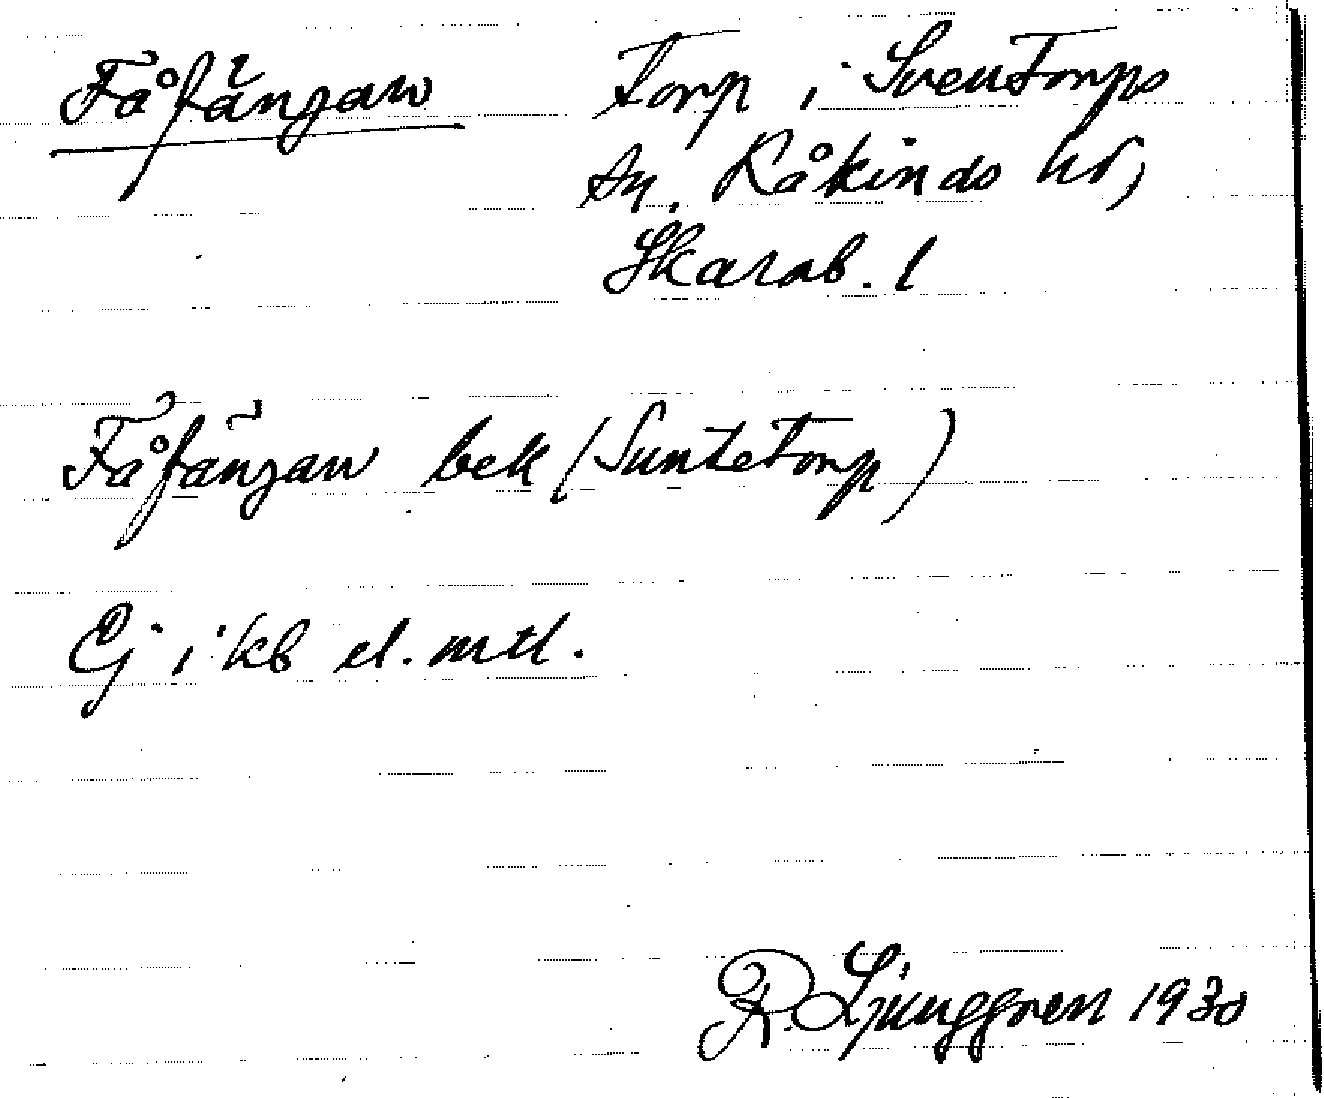 Fåfängan Torp i Sventorps
sn. Kåkinds hd,
Skarab. l
Fåfängan bek (Suntetorp)
Ej i kb el. mtl.
R. Ljunggren 1930